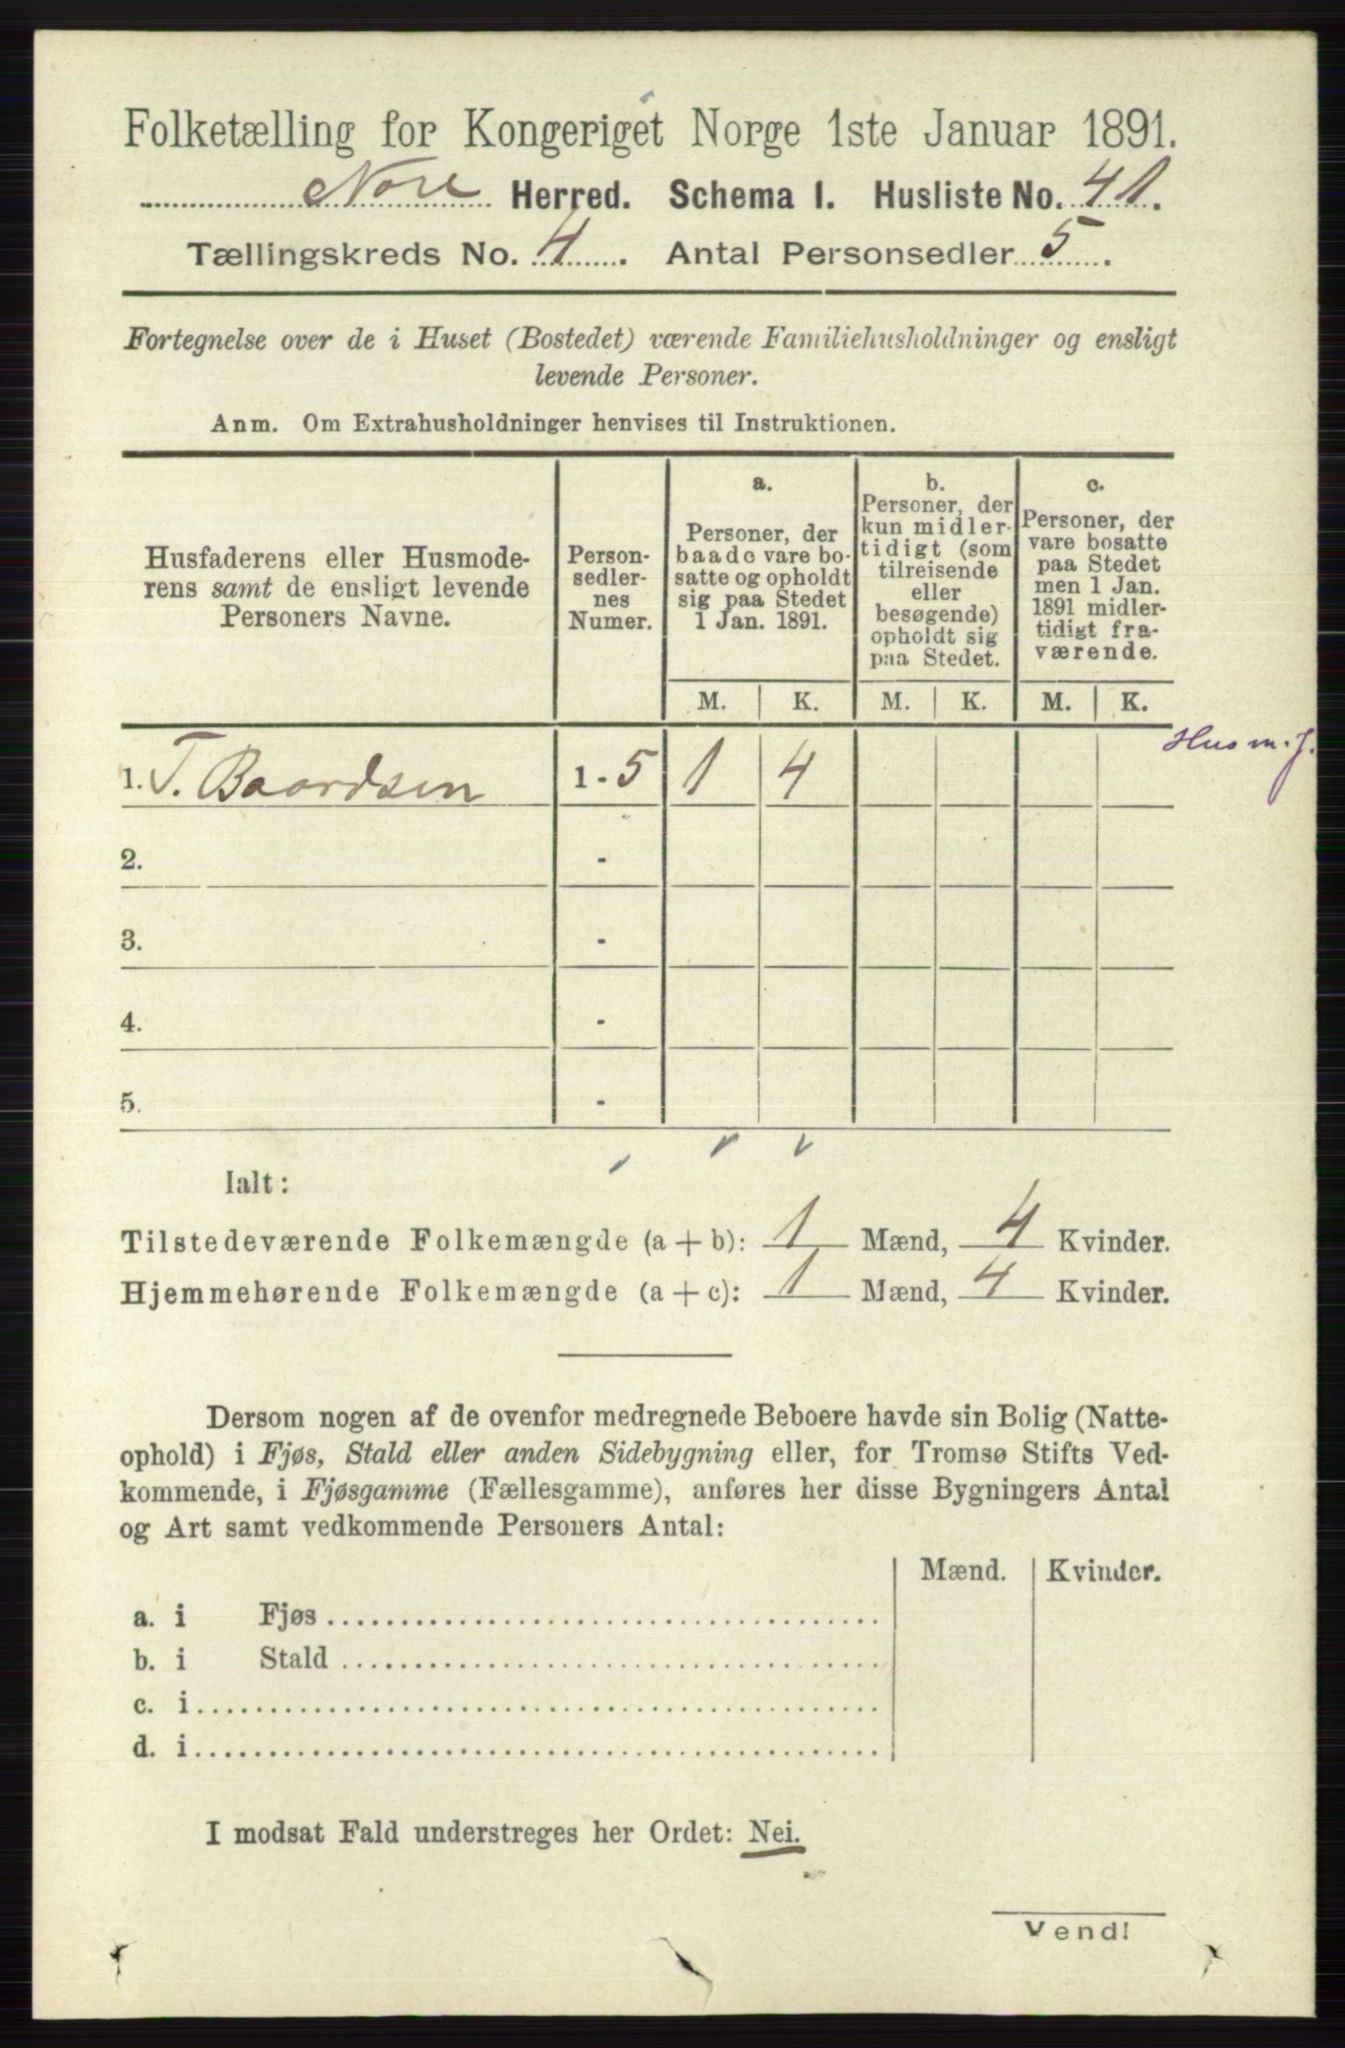 Folketælling for Kongeriget Norge 1ste Januar 1891.
Nore Herred. Schema I. Husliste No. 41.
Tællingskreds No. 4. Antal Personsedler 5.
Fortegnelse over de i Huset (Bostedet) værende Familiehusholdninger og ensligt
levende Personer.
Anm. Om Extrahusholdninger henvises til Instruktionen.
Husfaderens eller Husmode-
rens samt de ensligt levende
Personers Navne.
Person-
sedler-
nes
Numer.
a.
Personer, der
baade vare bo-
satte og opholdt
sig paa Stedet
1 Jan. 1891.
b.
Personer, der
kun midler-
tidigt (som
tilreisende
eller
besøgende)
opholdt sig
paa Stedet.
c.
Personer, der
vare bosatte
paa Stedet
men 1 Jan.
1891 midler-
tidigt fra-
værende.
M. K. M. K. M. K.
Husm. J.
1. T. Baardsen 1-5 1 4
2. -
3. -
4. -
5. -
Ialt:
Tilstedeværende Folkemængde (a + b): 1 Mænd, 4 Kvinder.
Hjemmehørende Folkemængde (a + c): 1 Mænd, 4 Kvinder.
Dersom nogen af de ovenfor medregnede Beboere havde sin Bolig (Natte-
ophold) i Fjøs, Stald eller anden Sidebygning eller, for Tromsø Stifts Ved-
kommende, i Fjøsgamme (Fællesgamme), anføres her disse Bygningers Antal
og Art samt vedkommende Personers Antal:
Mænd. Kvinder.
a. i Fjøs
b. i Stald
c. i
d. i
I modsat Fald understreges her Ordet: Nei.
Vend!